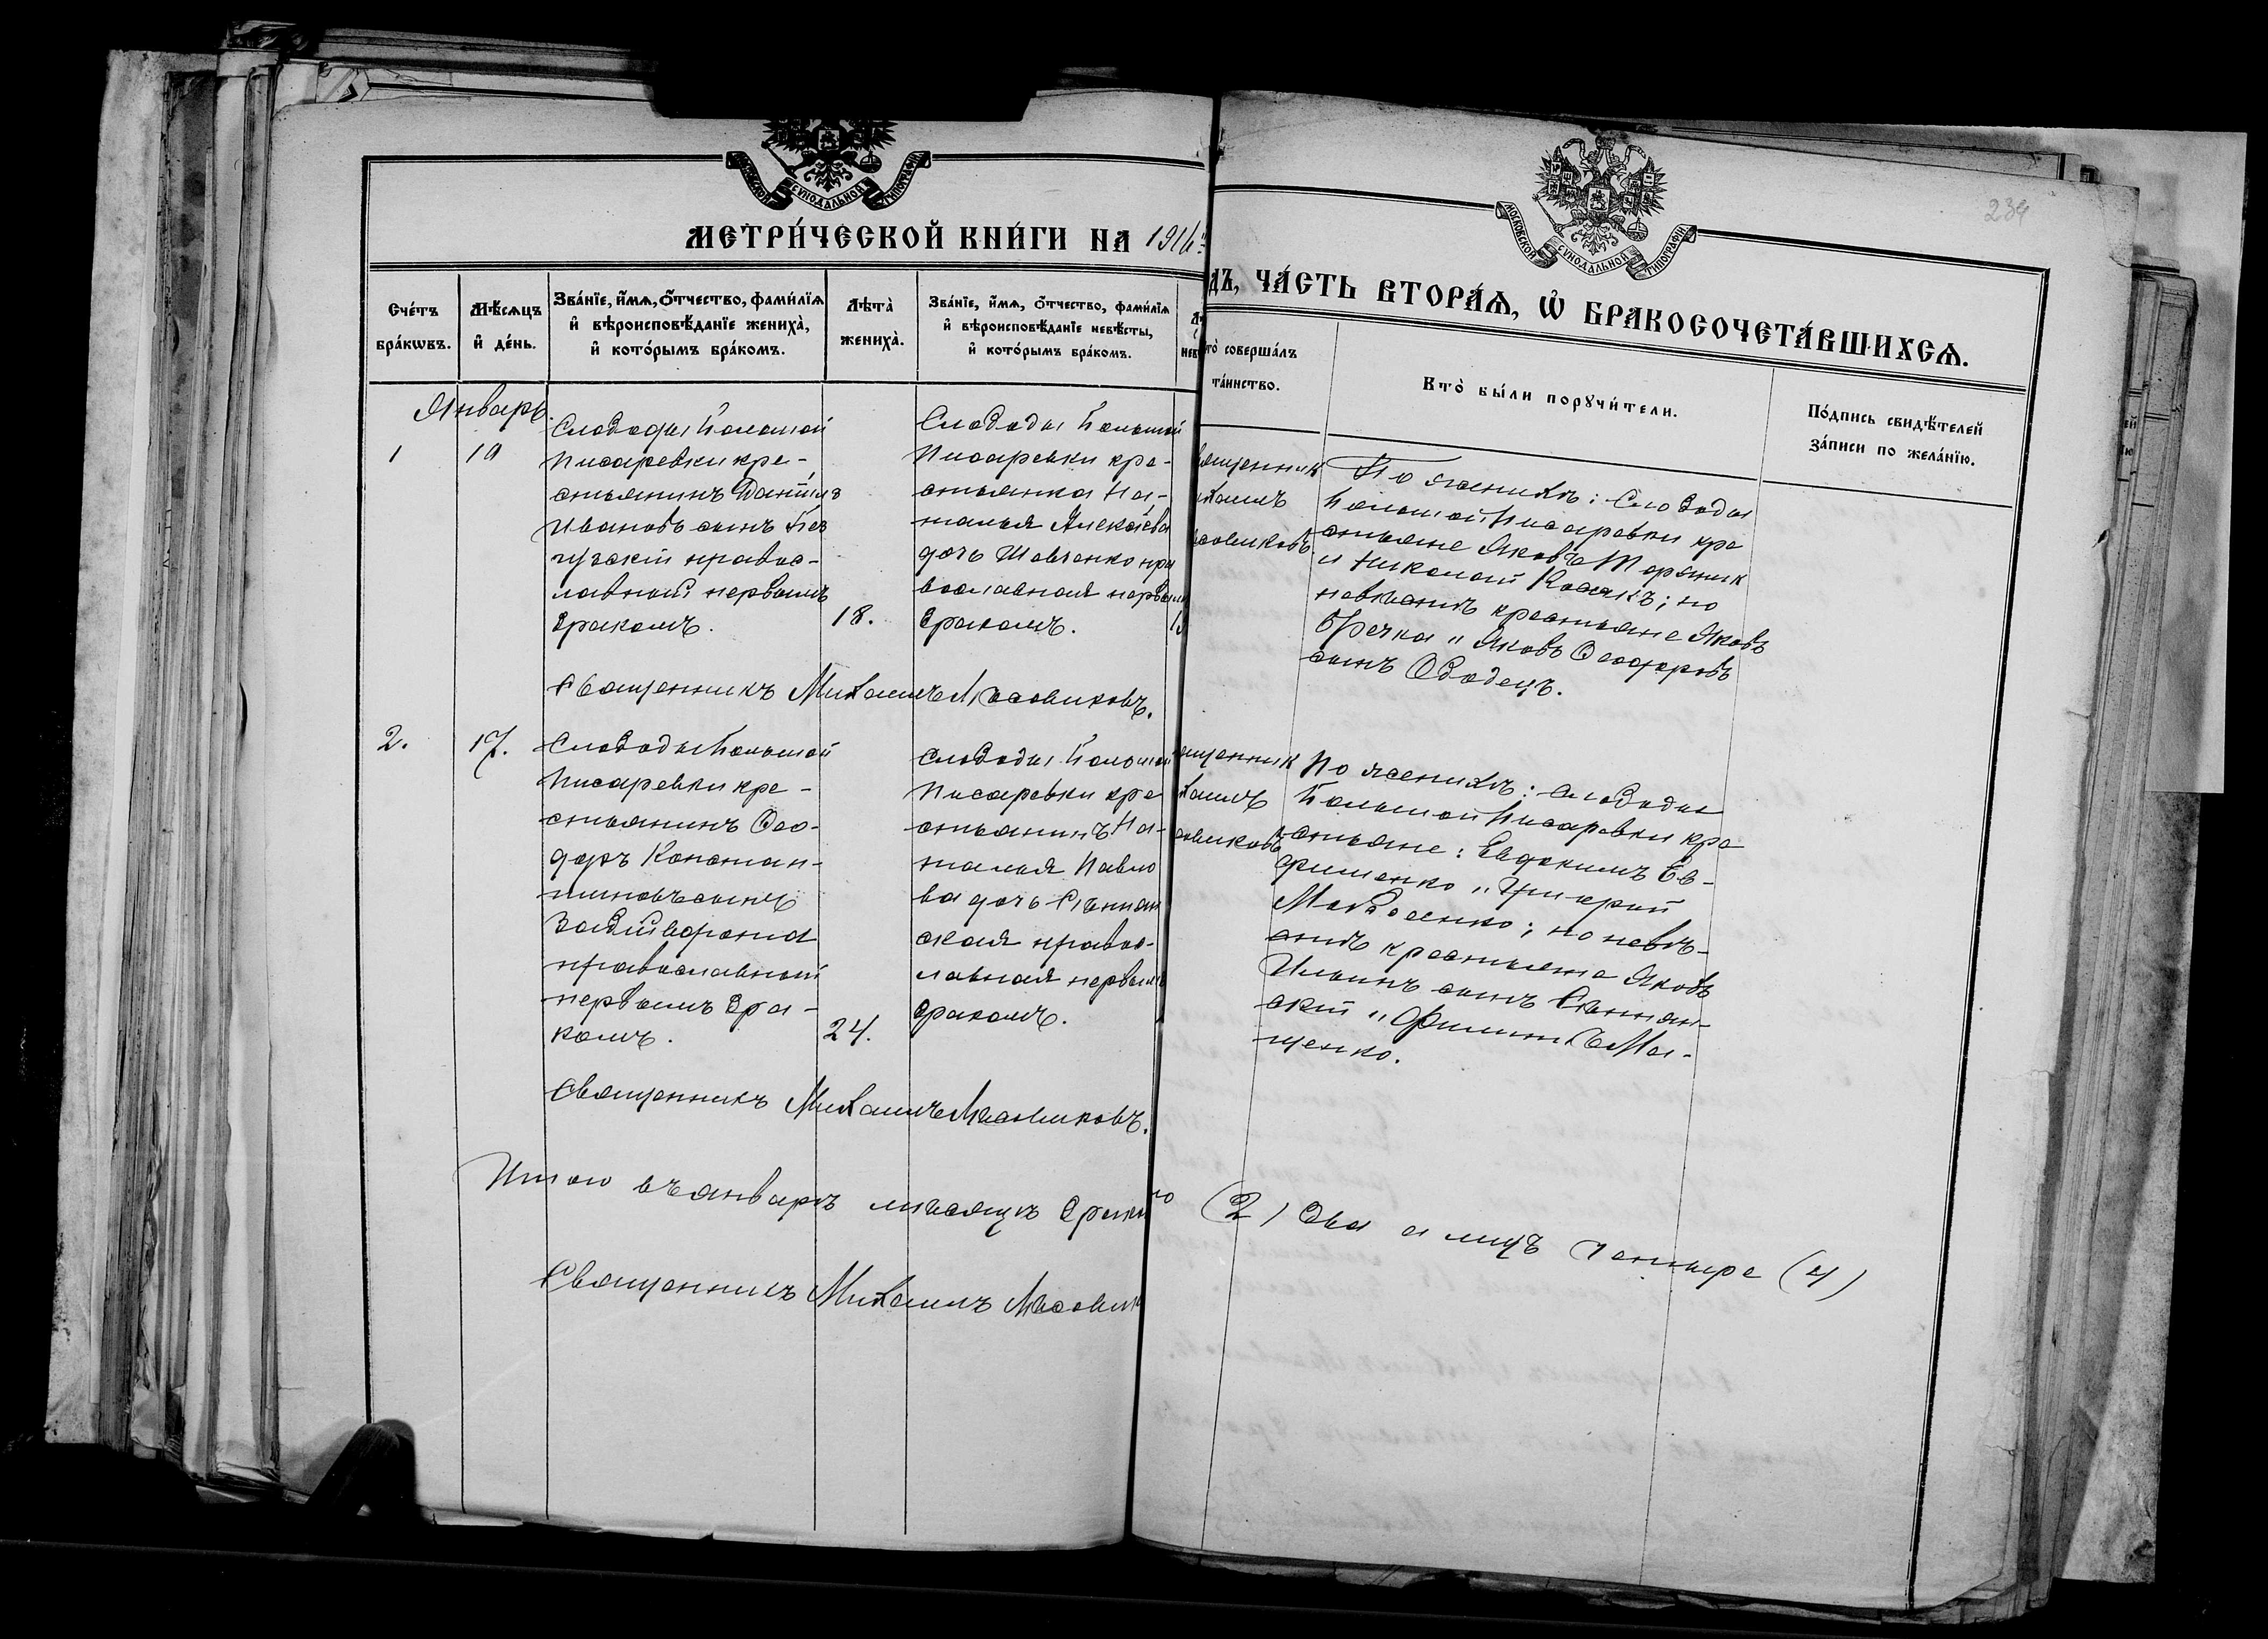 239
МЕТРИ́ЧЕСКОЙ КНИ́ГИ НА 1914
ДЪ, ЧА́СТЬ ВТОРА́Ѧ, Ѽ БРАКОСОЧЕТА́ВШИХСѦ.
МОСКОВСКОЙ СУНОДАЛЬНОЙ ТИПОГРАФІИ
Сче́тъ бра́кѡвъ.
Мѣ́сѧцъ и҆ де́нь.
Зва́нїе, и҆́мѧ, ѻ҆́тчество, фами́лїѧ
и҆ вѣроисповѣ́данїе жениха̀,
и҆ кото́рымъ бра́комъ.
Лѣ́та̀ жениха̀.
Зва́нїе, и҆́мѧ, ѻ҆́тчество, фами́лїѧ
и҆ вѣроисповѣ́данїе невѣ́сты,
и҆ кото́рымъ бра́комъ.
то̀ соверша́лъ
та́инство.
Кто̀ бы́ли порꙋчи́тели.
По́дпись свидѣ́телей
за́писи по жела́нїю.
Январь.
1
10
Слободы Большой
Писаревки кре-
стьянинъ Даніилъ
Ивановъ сынъ
православ-
ный первымъ
бракомъ.
18.
Слободы Большой
Писаревки кре-
стьянка На-
талья Алексѣева
дочь Шевченко пра
вославная первымъ
бракомъ.
ященник
ихаилъ
совиковъ
По женихѣ: Слободы
Большой Писаревки кре
стьяне Яковъ
и Николай Козакъ; по
невѣстѣ крестьяне Яковъ
Гречка и Яковъ Ѳеодоровъ
сынъ Ободецъ.
Священникъ Михаилъ Лѣсовиковъ.
2.
17.
Слободы Большой
Писаревки кре-
стьянинъ Ѳео-
доръ Констан-
тиновъ сынъ
православный
первымъ бра-
комъ.
24.
Слободы Большой
Писаревки кре
стьянинъ На-
талья Павло
ва дочь
православ-
ная первымъ
бракомъ.
ященник
ихаилъ
совиковъ
По женихѣ: Слободы
Большой Писаревки кре
стьяне: Евдокимъ Ев-
фименко и Григорий
по невѣ-
стѣ крестьяне Яковъ
Ильинъ сынъ
и Филиппъ Ма-
щенко.
Священникъ Михаилъ Лѣсовиковъ.
Итого въ январѣ мѣсяцѣ брако (2) два а лицъ четыре (4)
Священникъ Михаилъ Лѣсовик